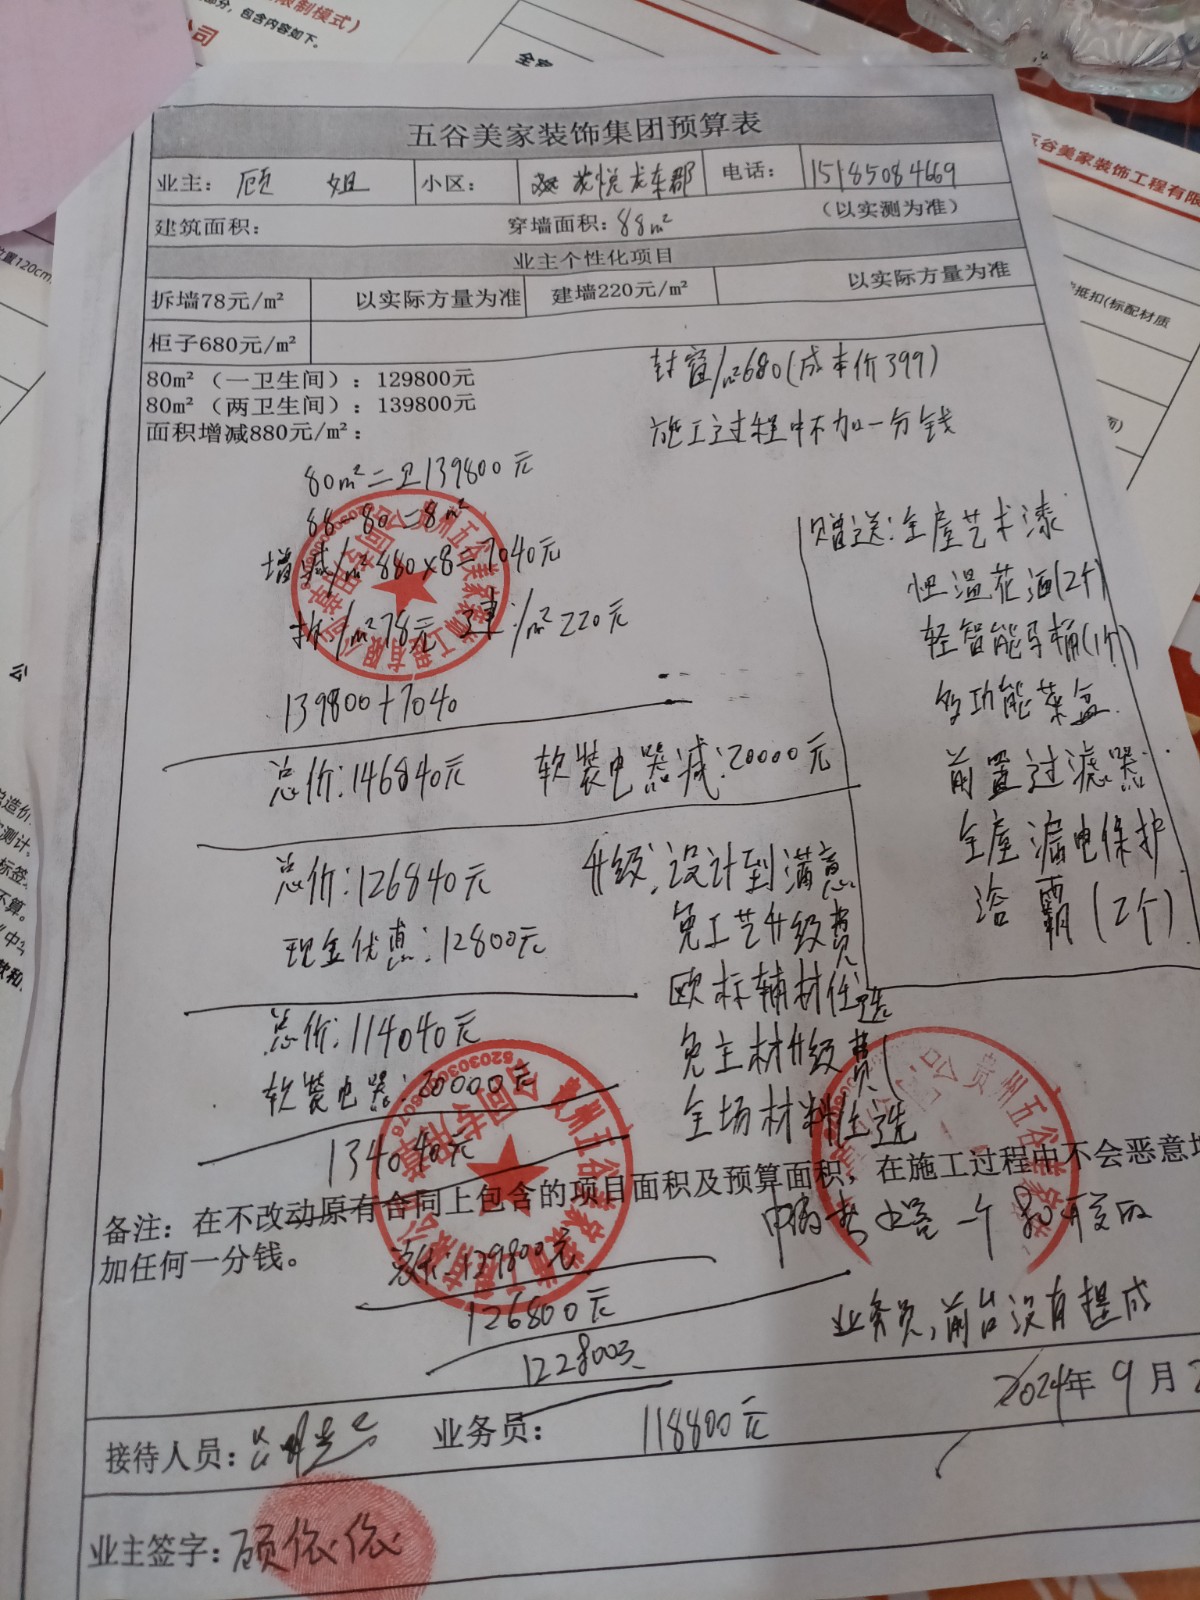 限制模式)
部分，包含内容如下。
公司
全
五谷美家装饰工程有限
位置120cm
抵扣(标配材质
五谷美家装饰集团预算表
业主：顾 姐 小区： 花悦龙车郡 电话： 15185084669
建筑面积： 穿墙面积：88m² （以实测为准）
业主个性化项目
拆墙78元/m² 以实际方量为准 建墙220元/m² 以实际方量为准
柜子680元/m²
80m²（一卫生间）：129800元
80m²（两卫生间）：139800元
面积增减880元/m²：
封窗/m²680(成本价399)
施工过程中不加一分钱
80m²二卫139800元
88-80=8m²
增减/m²880×8=7040元
拆/m²78元 建:/m²220元
139800+7040
总价:146840元 软装电器减:20000元
总价:126840元
现金优惠:12800元
总价:114040元
软装电器:20000元
134040元
升级:设计到满意
免工艺升级费
欧标辅材任选
免主材升级费
全场材料任选
赠送:全屋艺术漆
恒温花洒(2个)
轻智能马桶(1个)
多功能菜盆
前置过滤器
全屋漏电保护
浴霸(2个)
备注：在不改动原有合同上包含的项目面积及预算面积，在施工过程中不会恶意增
加任何一分钱。
总价:129800元
126800元
122800元
业务员,前台没有提成
2024年9月
接待人员： 业务员： 118800元
业主签字：顾依依